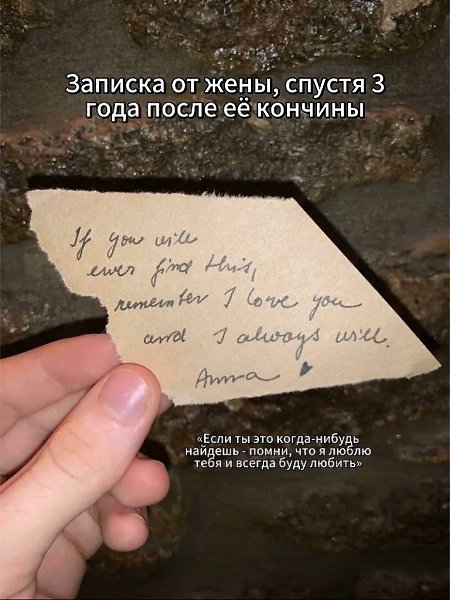 Записка от жены, спустя 3
года после её кончины
If you will
ever find this,
remember I love you
and I always will.
Anna
«Если ты это когда-нибудь
найдешь - помни, что я люблю
тебя и всегда буду любить»